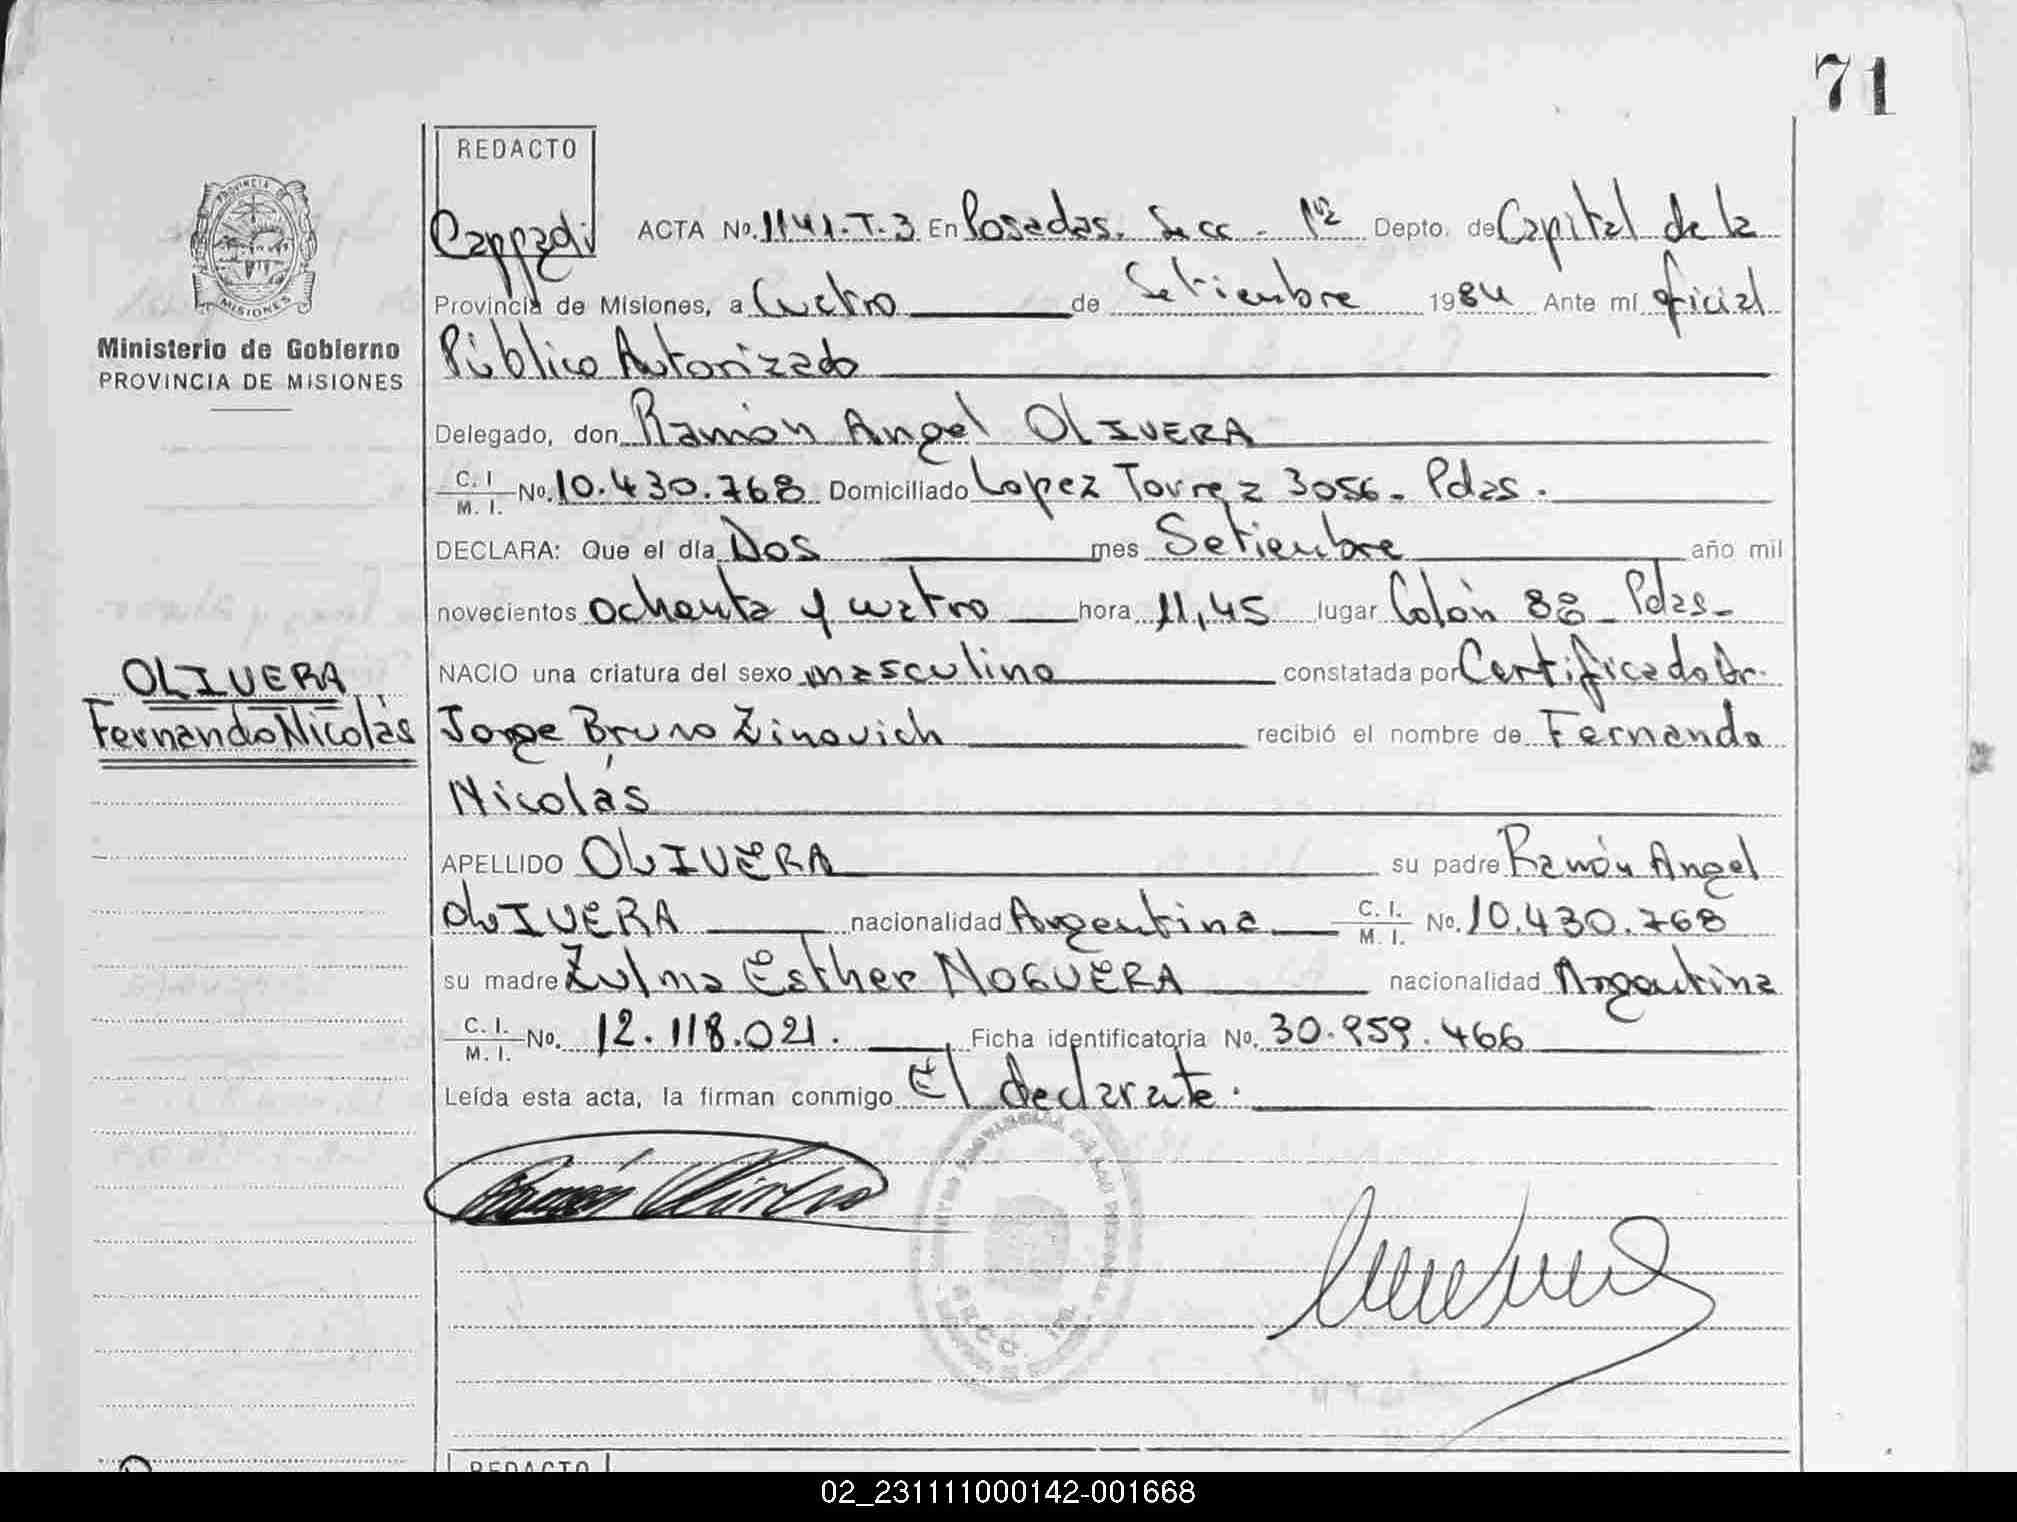 71
REDACTO
Cappadi
ACTA No. 1141-T-3 En Posadas. Secc - 1ª Depto. de Capital de la
Provincia de Misiones, a Cuatro de Setiembre 1984 Ante mí oficial
Público Autorizado
Delegado, don Ramón Angel OLIVERA
C. I. M. I. No. 10.430.768 Domiciliado Lopez Torrez 3056- Pdas.
DECLARA: Que el día Dos mes Setiembre año mil
novecientos ochenta y cuatro hora 11,45 lugar Colón 88 - Pdas-
NACIO una criatura del sexo masculino constatada por Certificado Dr.
Jorge Bruno Zinovich recibió el nombre de Fernando
Nicolás
APELLIDO OLIVERA su padre Ramón Angel
OLIVERA nacionalidad Argentina C. I. M. I. No. 10.430.768
su madre Zulma Esther NOGUERA nacionalidad Argentina
C. I. M. I. No. 12.118.021. Ficha identificatoria No. 30.959.466
Leída esta acta, la firman conmigo El declarate.
PROVINCIA DE
MISIONES
Ministerio de Gobierno
PROVINCIA DE MISIONES
OLIVERA
Fernando Nicolás
REDACTO
02_231111000142-001668